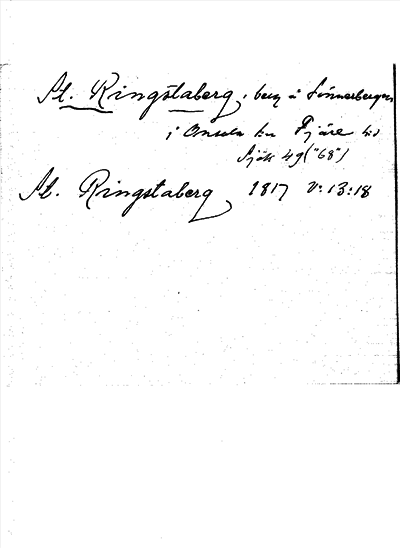 St. Ringstaberg, berg å Sönnerbergen
i Onsala sn Fjäre hd
Sjök 49 ("68")
St. Ringstaberg 1817 V:13:18